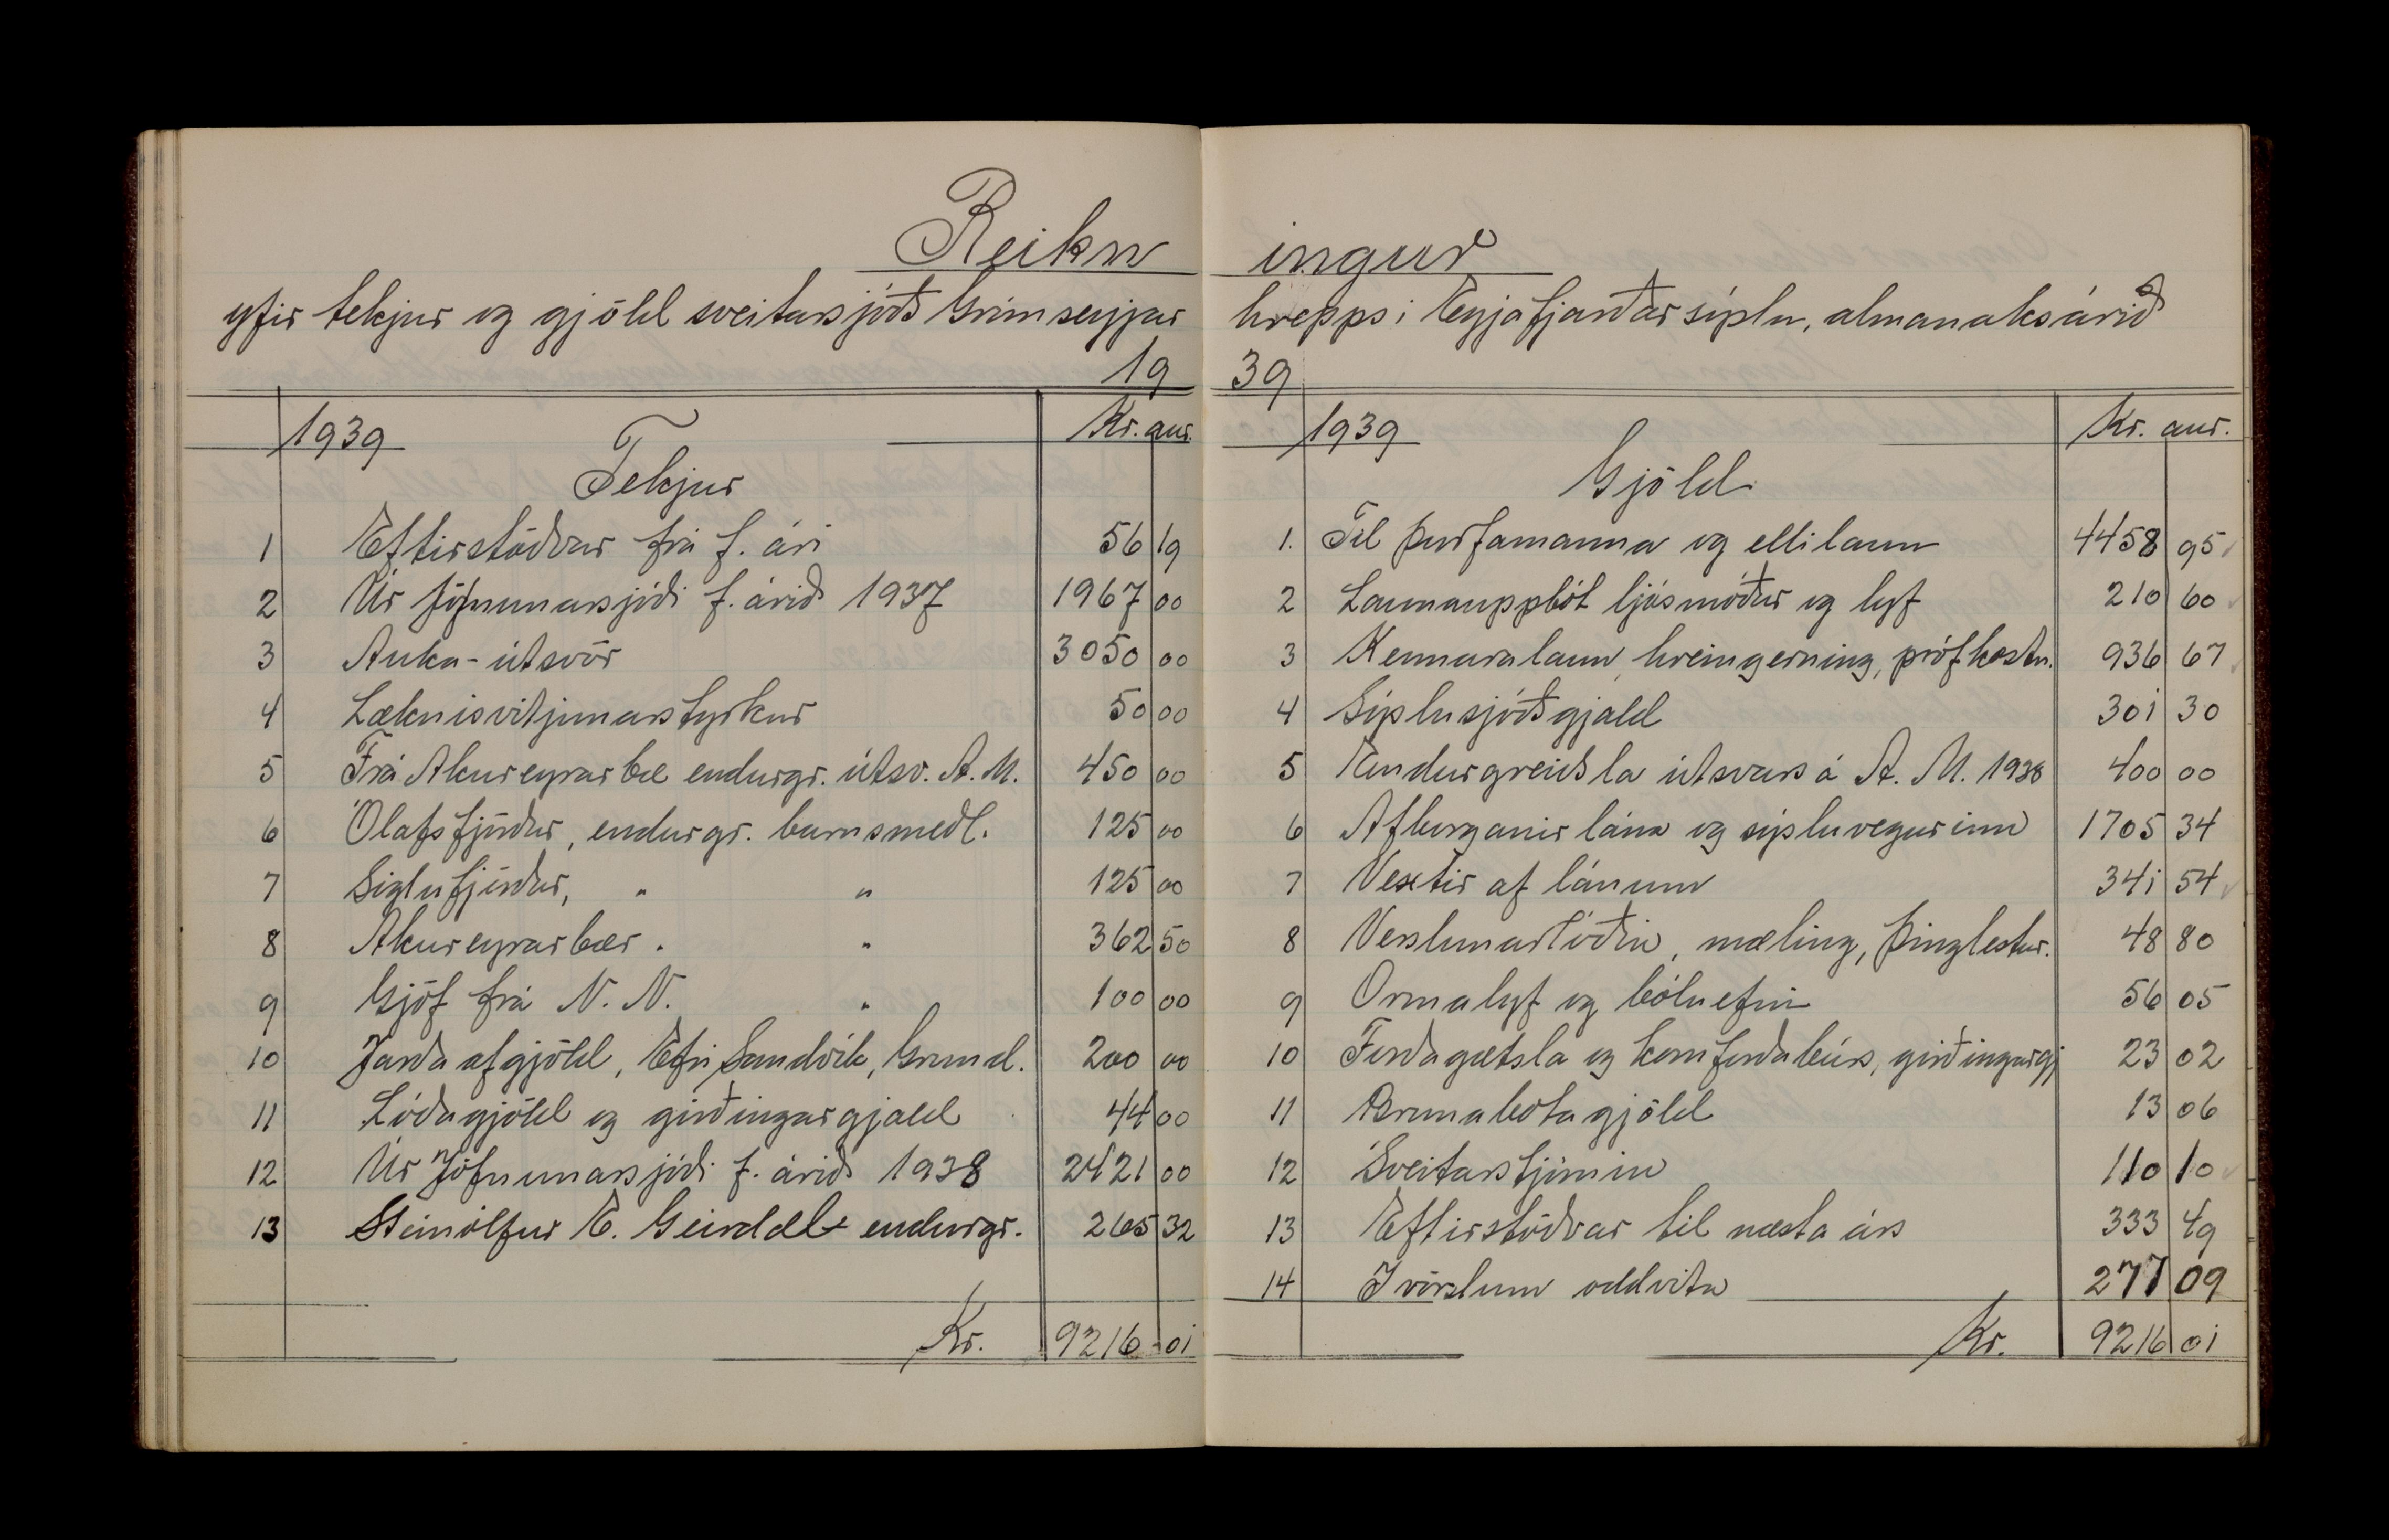 Reikningur
yfir tekjur og gjöld sveitarsjóðs Grímseyjarhrepps í Eyjafjarðarsýslu, almanaksárið
1939
1939 Kr. aur.
Tekjur
1 Eftirstöðvar frá f. ári 56 19
2 Úr Jöfnunarsjóði f. árið 1937 1967 00
3 Auka-útsvör 3050 00
4 Læknisvitjunarstyrkur 50 00
5 Frá Akureyrarbæ endurgr. útsv. A. M. 450 00
6 Ólafsfjörður, endurgr. barnsmeðl. 125 00
7 Siglufjörður, " " 125 00
8 Akureyrarbær. " 362 50
9 Gjöf frá N. N. " 100 00
10 Jarðaafgjöld, Efri Sandvík, Grund. 200 00
11 Lóðagjöld og girðingargjald 44 00
12 Úr Jöfnunarsjóði f. árið 1938 2421 00
13 Steinólfur E. Geirdal endurgr. 265 32
Kr. 9216 01
1939 Kr. aur.
Gjöld
1. Til þurfamanna og ellilaun 4458 95
2 Launauppbót ljósmóður og lyf 210 60
3 Kennaralaun, hreingerning, prófkostn. 936 67
4 Sýslusjóðsgjald 301 30
5 Endurgreiðsla útsvars á A. M. 1938 400 00
6 Afborganir lána og sýsluvegurinn 1705 34
7 Vextir af lánum 341 54
8 Verslunarlóðin, mæling, þinglestur. 48 80
9 Ormalyf og bóluefni 56 05
10 Forðagætsla og kornforðabúrs, girðingargj 23 02
11 Brunabótagjöld 13 06
12 Sveitarstjórnin 110 10
13 Eftirstöðvar til næsta árs 333 49
14 Í vörslum oddvita 277 09
Kr. 9216 01